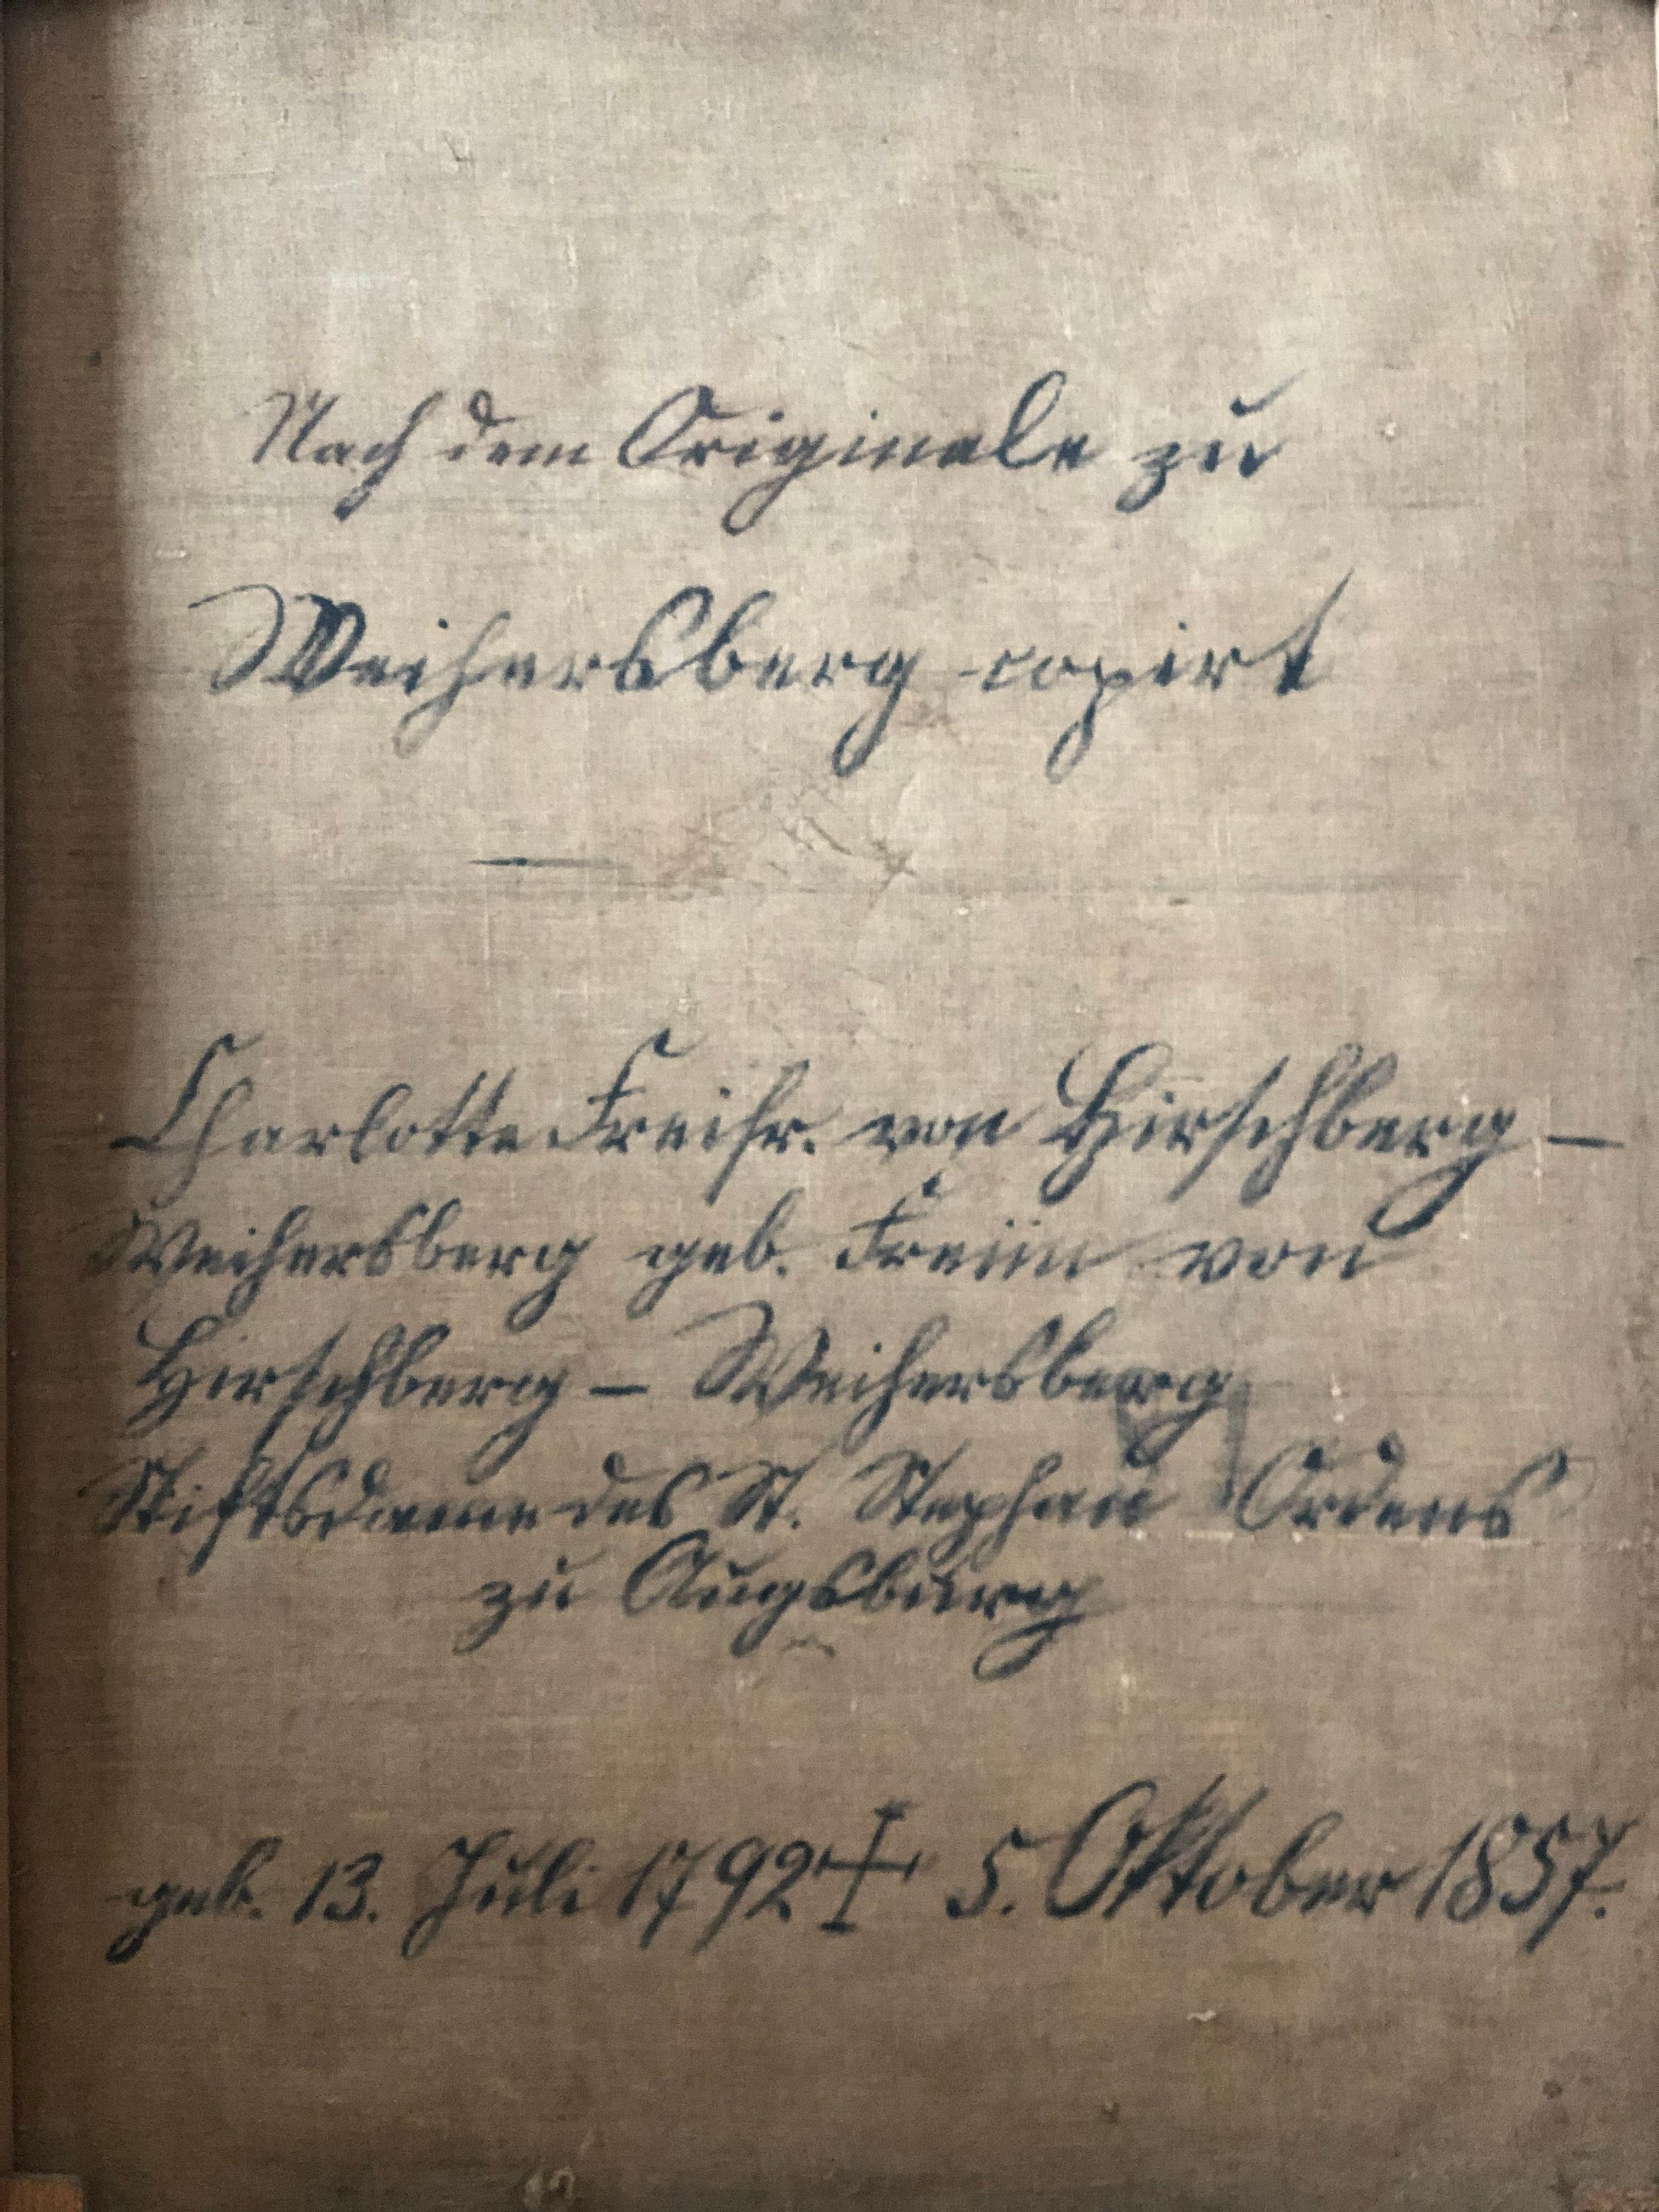 Nach dem Originale zu
Weihersberg copirt
—
Charlotte Freifr. von Hirschberg —
Weihersberg geb. Freiin von
Hirschberg — Weihersberg
Stiftsdame des St. Stephan Ordens
zu Augsburg
geb. 13. Juli 1792 † 5. Oktober 1857.